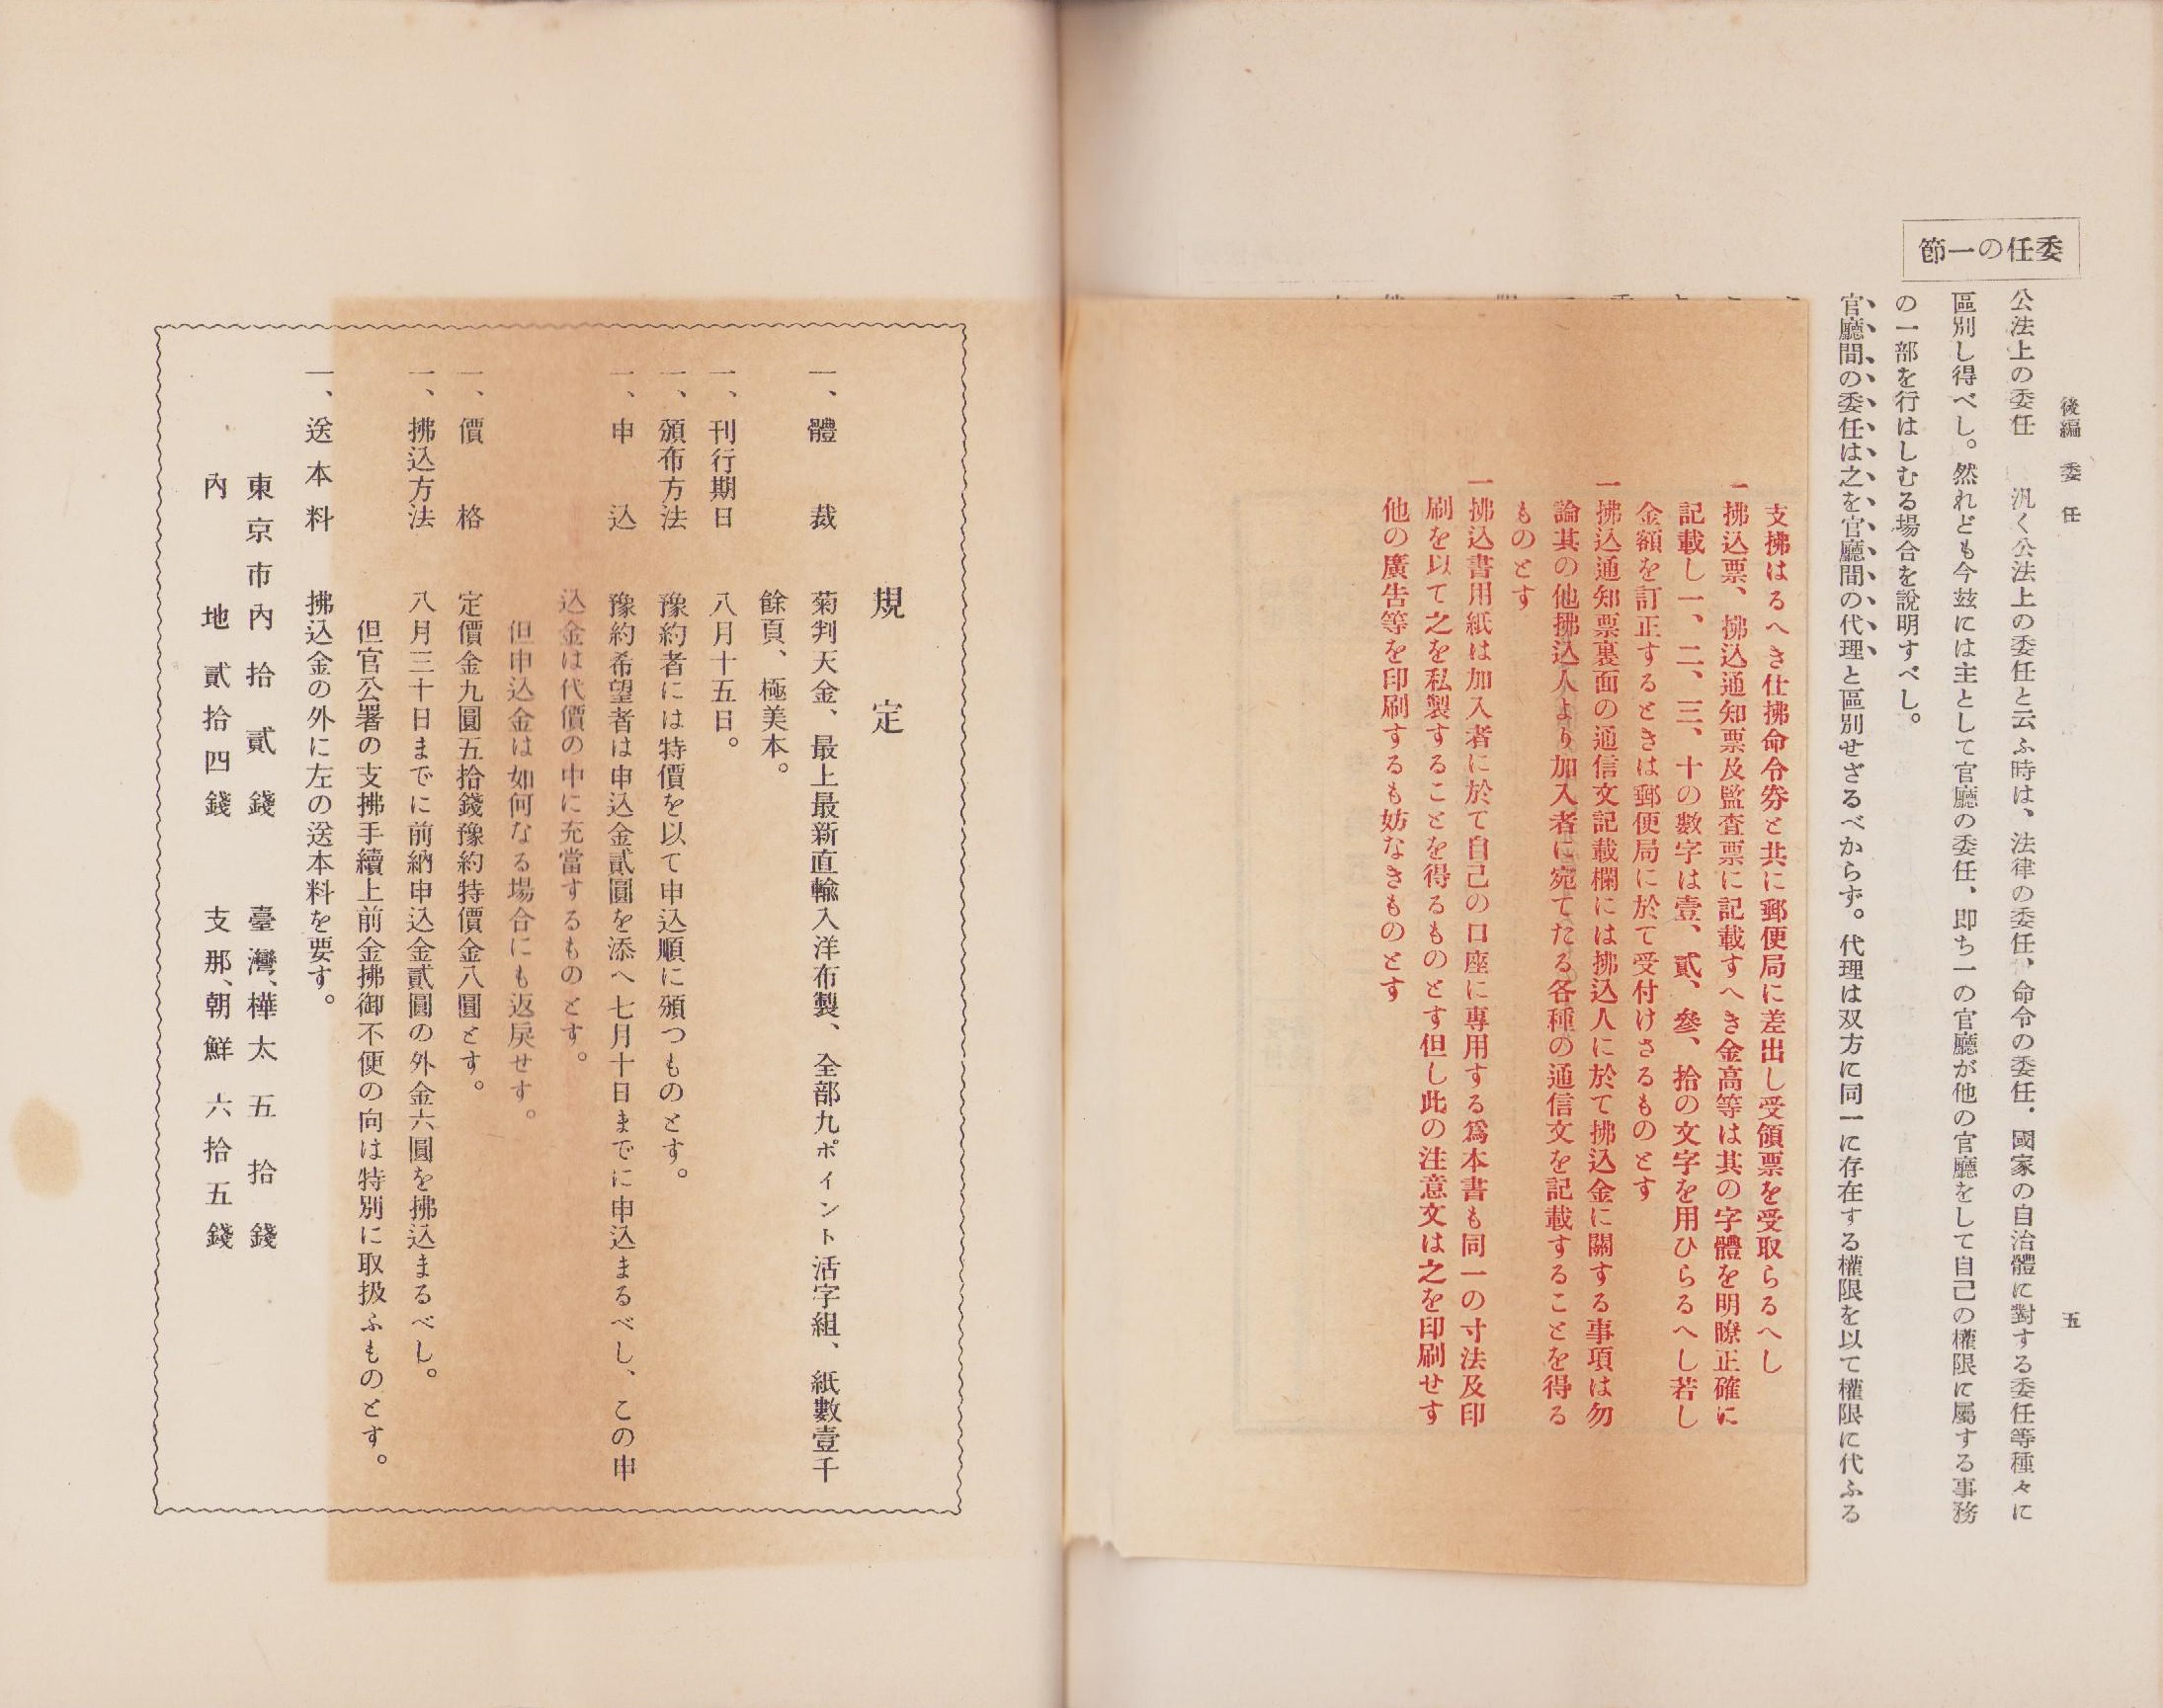 委任の一節
後編　委任　五
公法上の委任　汎く公法上の委任と云ふ時は、法律の委任、命令の委任．國家の自治體に對する委任等種々に
區別し得べし。然れども今玆には主として官廳の委任、即ち一の官廳が他の官廳をして自己の權限に屬する事務
の一部を行はしむる場合を說明すべし。
官廳間の委任は之を官廳間の代理と區別せざるべからず。代理は双方に同一に存在する權限を以て權限に代ふる
支拂はるへき仕拂命令劵と共に郵便局に差出し受領票を受取らるへし
一拂込票、拂込通知票及監査票に記載すへき金高等は其の字體を明瞭正確に
記載し一、二、三、十の數字は壹、貳、參、拾の文字を用ひらるへし若し
金額を訂正するときは郵便局に於て受付けさるものとす
一拂込通知票裏面の通信文記載欄には拂込人に於て拂込金に關する事項は勿
論其の他拂込人より加入者に宛てたる各種の通信文を記載することを得る
ものとす
一拂込書用紙は加入者に於て自己の口座に專用する爲本書も同一の寸法及印
刷を以て之を私製することを得るものとす但し此の注意文は之を印刷せす
他の廣告等を印刷するも妨なきものとす
規定
一、體裁　菊判天金、最上最新直輸入洋布製、全部九ポイント活字組、紙數壹千
餘頁、極美本。
一、刊行期日　八月十五日。
一、頒布方法　豫約者には特價を以て申込順に頒つものとす。
一、申込　豫約希望者は申込金貳圓を添へ七月十日までに申込まるべし、この申
込金は代價の中に充當するものとす。
但申込金は如何なる場合にも返戾せす。
一、價格　定價金九圓五拾錢豫約特價金八圓とす。
一、拂込方法　八月三十日までに前納申込金貳圓の外金六圓を拂込まるべし。
但官公署の支拂手續上前金拂御不便の向は特別に取扱ふものとす。
一、送本料　拂込金の外に左の送本料を要す。
東京市內　拾貳錢　臺灣、樺太　五拾錢
內地　貳拾四錢　支那、朝鮮　六拾五錢